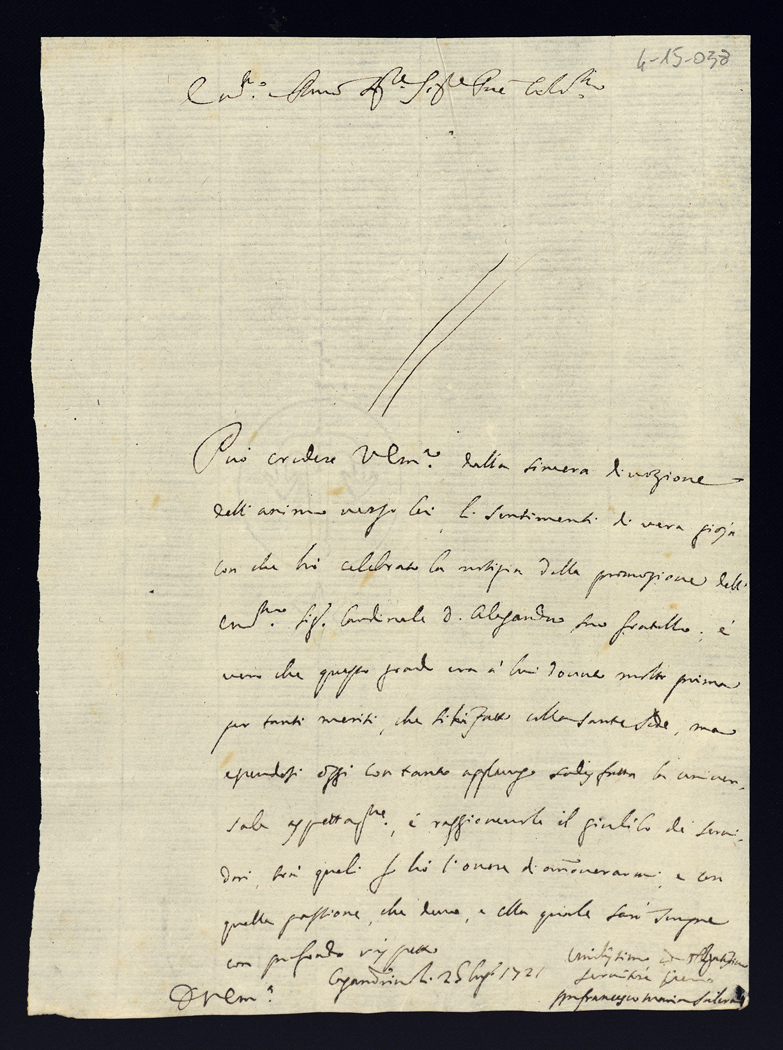 4-15-038
Può credere V Em.ª dalla sincera divozione
dell'animo verso lei, li sentimenti di vera gioja
con che hò celebrato la notizia della promozione dell'
Em.mo Sig.r Cardinale D. Alesandro suo fratello; é
vero che questo grado era à lui dovuto molto prima
per tanti meriti, che si hà fatto colla Santa Sede, ma
essendosi oggi con tanto applauso sodisfatta la univer-
sale aspettaz.ne, é raggionevole il giubilo de servi-
dori, trà quali hò l'onore di annoverarmi, e con
quella passione, che devo, e alla quale sarò sempre
con profondo rispetto
D V Em.ª
25 1721
Umilissimo
francesco maria